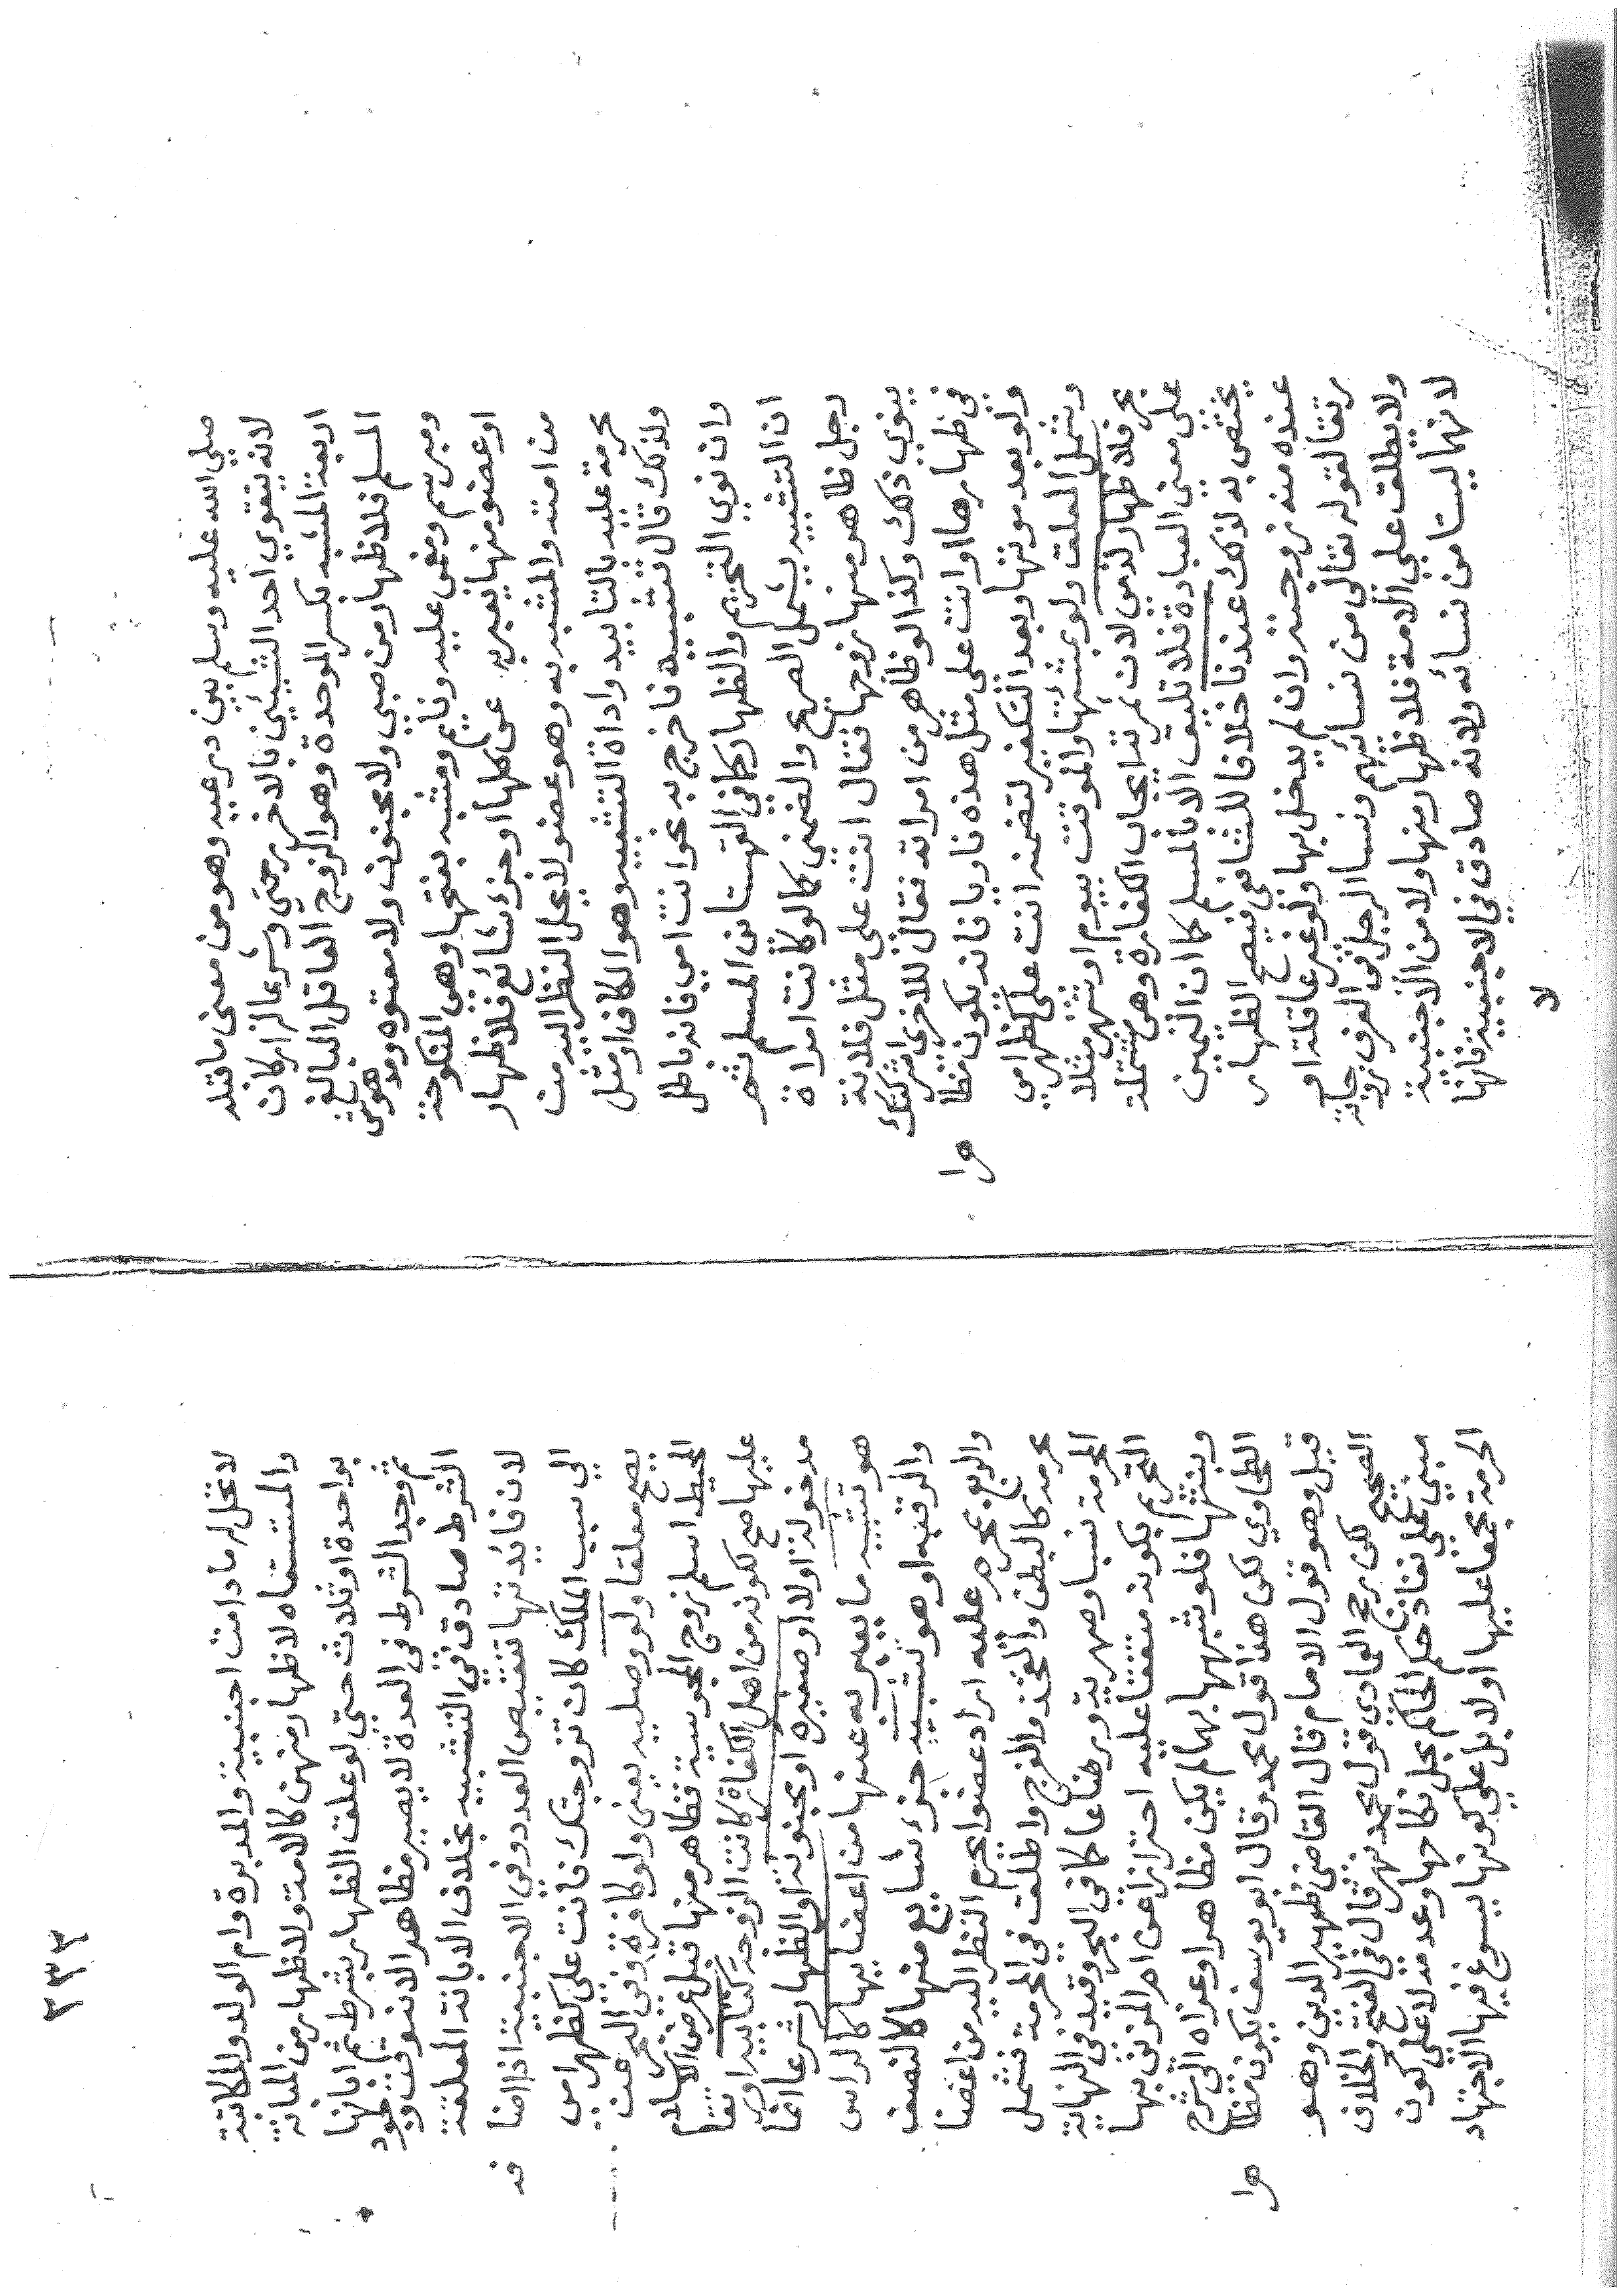 صلي الله عليه وسلم بين درعيه وهو من معنى ماقبله
لانه يتقوي احد الشيئين بالاخر برجندي وشرعا له اركان
اربعة المشبه بكسر الموحدة وهو الزوج العاقل البالغ
المسلم فلا ظهار من صبي ولا مجنون ولا معتوه ومدهوش
ومبرسم ومغمى عليه ونايم ومشبه بفتحها وهى المنكوحة
او عضو منها يعبر به عن كلها او جزء شائع فلا ظهار
من امته والمشبه به وهو عضو لا يحل النظر اليه من
محرمة عليه بالتابيد واداة التشبيه وهو الكاف او مثل
ولذلك قال تشبيه فاخرج به نحو انت امي فانه باطل
وان نوي التحريم والظهار كما في القهستاني المسلم ثم
ان التشبيه يشمل الصريح والضمني كما لو كانت امراة
رجل ظاهر منها زوجها فقال انت علي مثل فلانة
ينوي ذلك وكذا لو ظاهر من امراته فقال للاخرى اشركتك
في ظهارها او انت على مثل هذه ناويا فانه يكون مظا
هرا
ولو بعد موتها وبعد التكفير لتضمنه انت على كظهر امي
وشمل المعلق ولو بمشئتها والموقت بيوم او شهر مثلا
بحر فلا ظهار لذمي لان ثمرته ايجاب الكفارة وهى مشتملة
على معني العبادة فلا تليق الا بالمسلم كما ان اليمين
يختص به لذلك عندنا خلافا للشافعي فيصح الظهار
عنده منه زوجته وان لم يدخل بها ولو غير عاقلة او
رتقا لقوله تعالى من نسائهم ونسا الرجل فى العرف زوجاته
ولا يطلق علي الامة فلا ظهار منها ولا من الاجنبية
لانهما ليستا من نسائه ولانه صادق في الاجنبية فانها
لا
٢٣٣
لا تحل له ما دامت اجنبية والمدبرة وام الولد والمكاتبة
والمستسعاه لا ظهار منهن كالامة ولا ظهار من المبانة
بواحدة او ثلاث حتى لو علق الظهار بشرط ثم ابانها
ثم وجد الشرط فى العدة لا يصير مظاهرا لانه وقت وجود
الشرط صادق في التشبيه بخلاف الابانة المعلقة
لان فايدتها تنقيص العدد وفي الاجنبية اذا اضا
فه
الي سبب الملك كان تزوجتك فانت على كظهر امي
يصح معلقا ولو وصليه بمعنى ولو كافرة وفى البحر عن
المحيط اسلم زوج المجوسية فظاهر منها قبل عرض الاسلام
عليها صح لكونه من اهل الكفارة كانت الزوجة كتابية او رتقا
مدخولة او لا او صغيره او مجنونة او الظهار شرعا انما
هو تشبيه ما يعبر به عنها من اعضايها كالراس
والرقبه او هو تشبيه جزء شايع منها كالنصف
والربع بمحرم عليه اراد عضوا يحرم النظر اليه من اعضا
محرمه كالبطن والفخذ والفرج واطلق فى الحرمة فشمل
المحرمة نسبا وصهرية ورضاعا كما في البحر وقيد فى النهاية
التحريم بكونه متفقا عليه احترازا عن ام المزني بها
وبنتها فلو شبهها بهما لم يكن مظاهرا وعزاه الى شرح
الطحاوي لكن هذا قول محمد وقال ابو يوسف يكون مظا
هرا
قيل وهو قول الامام قال القاضى ظهير الدين وهو
الصحيح لكن رجح العمادي قول محمد نهر قال في الفتح والخلاف
مبني على نفاذ حكم الحاكم بحل نكاحها وعدمه لا على كون
الحرمة مجمعا عليها او لا بل علي كونها يسوغ فيها الاجتهاد